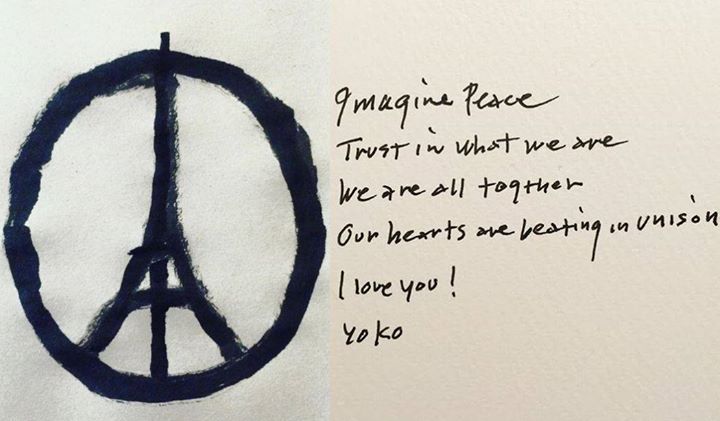 Imagine Peace
Trust in what we are
We are all togther
Our hearts are beating in unison
I love you!
Yoko